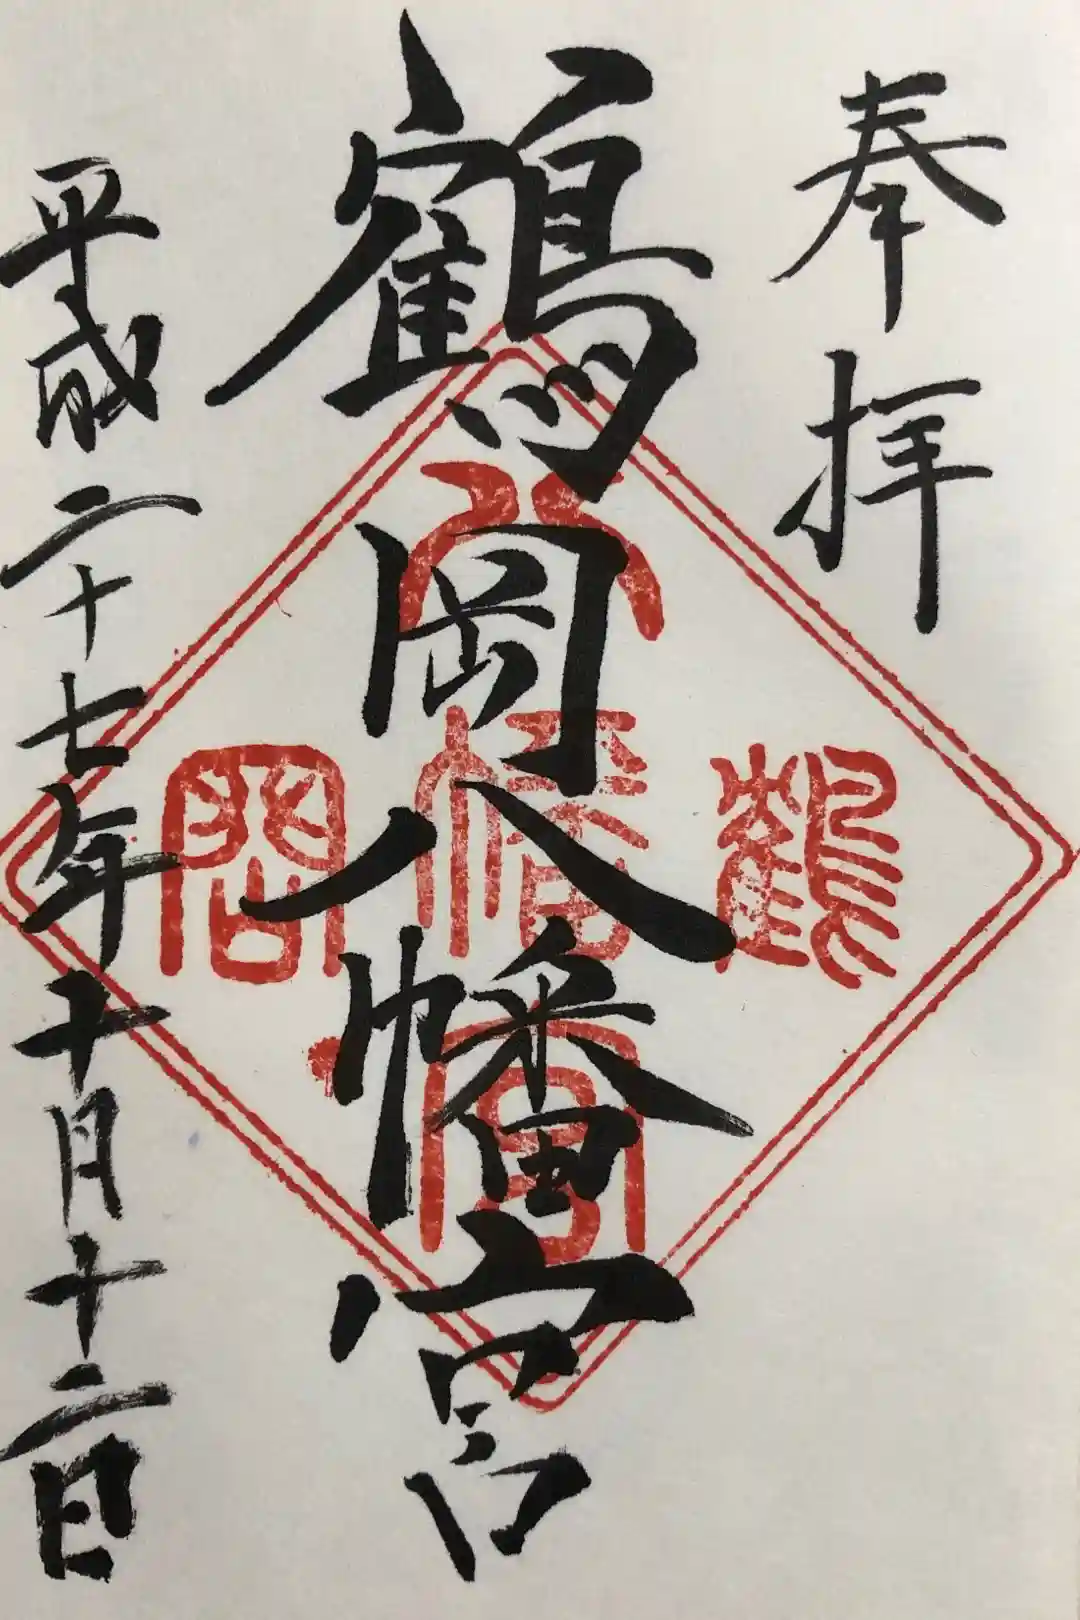 奉拝
鶴岡八幡宮
平成二十七年十月十二日
鶴
八幡宮
岡